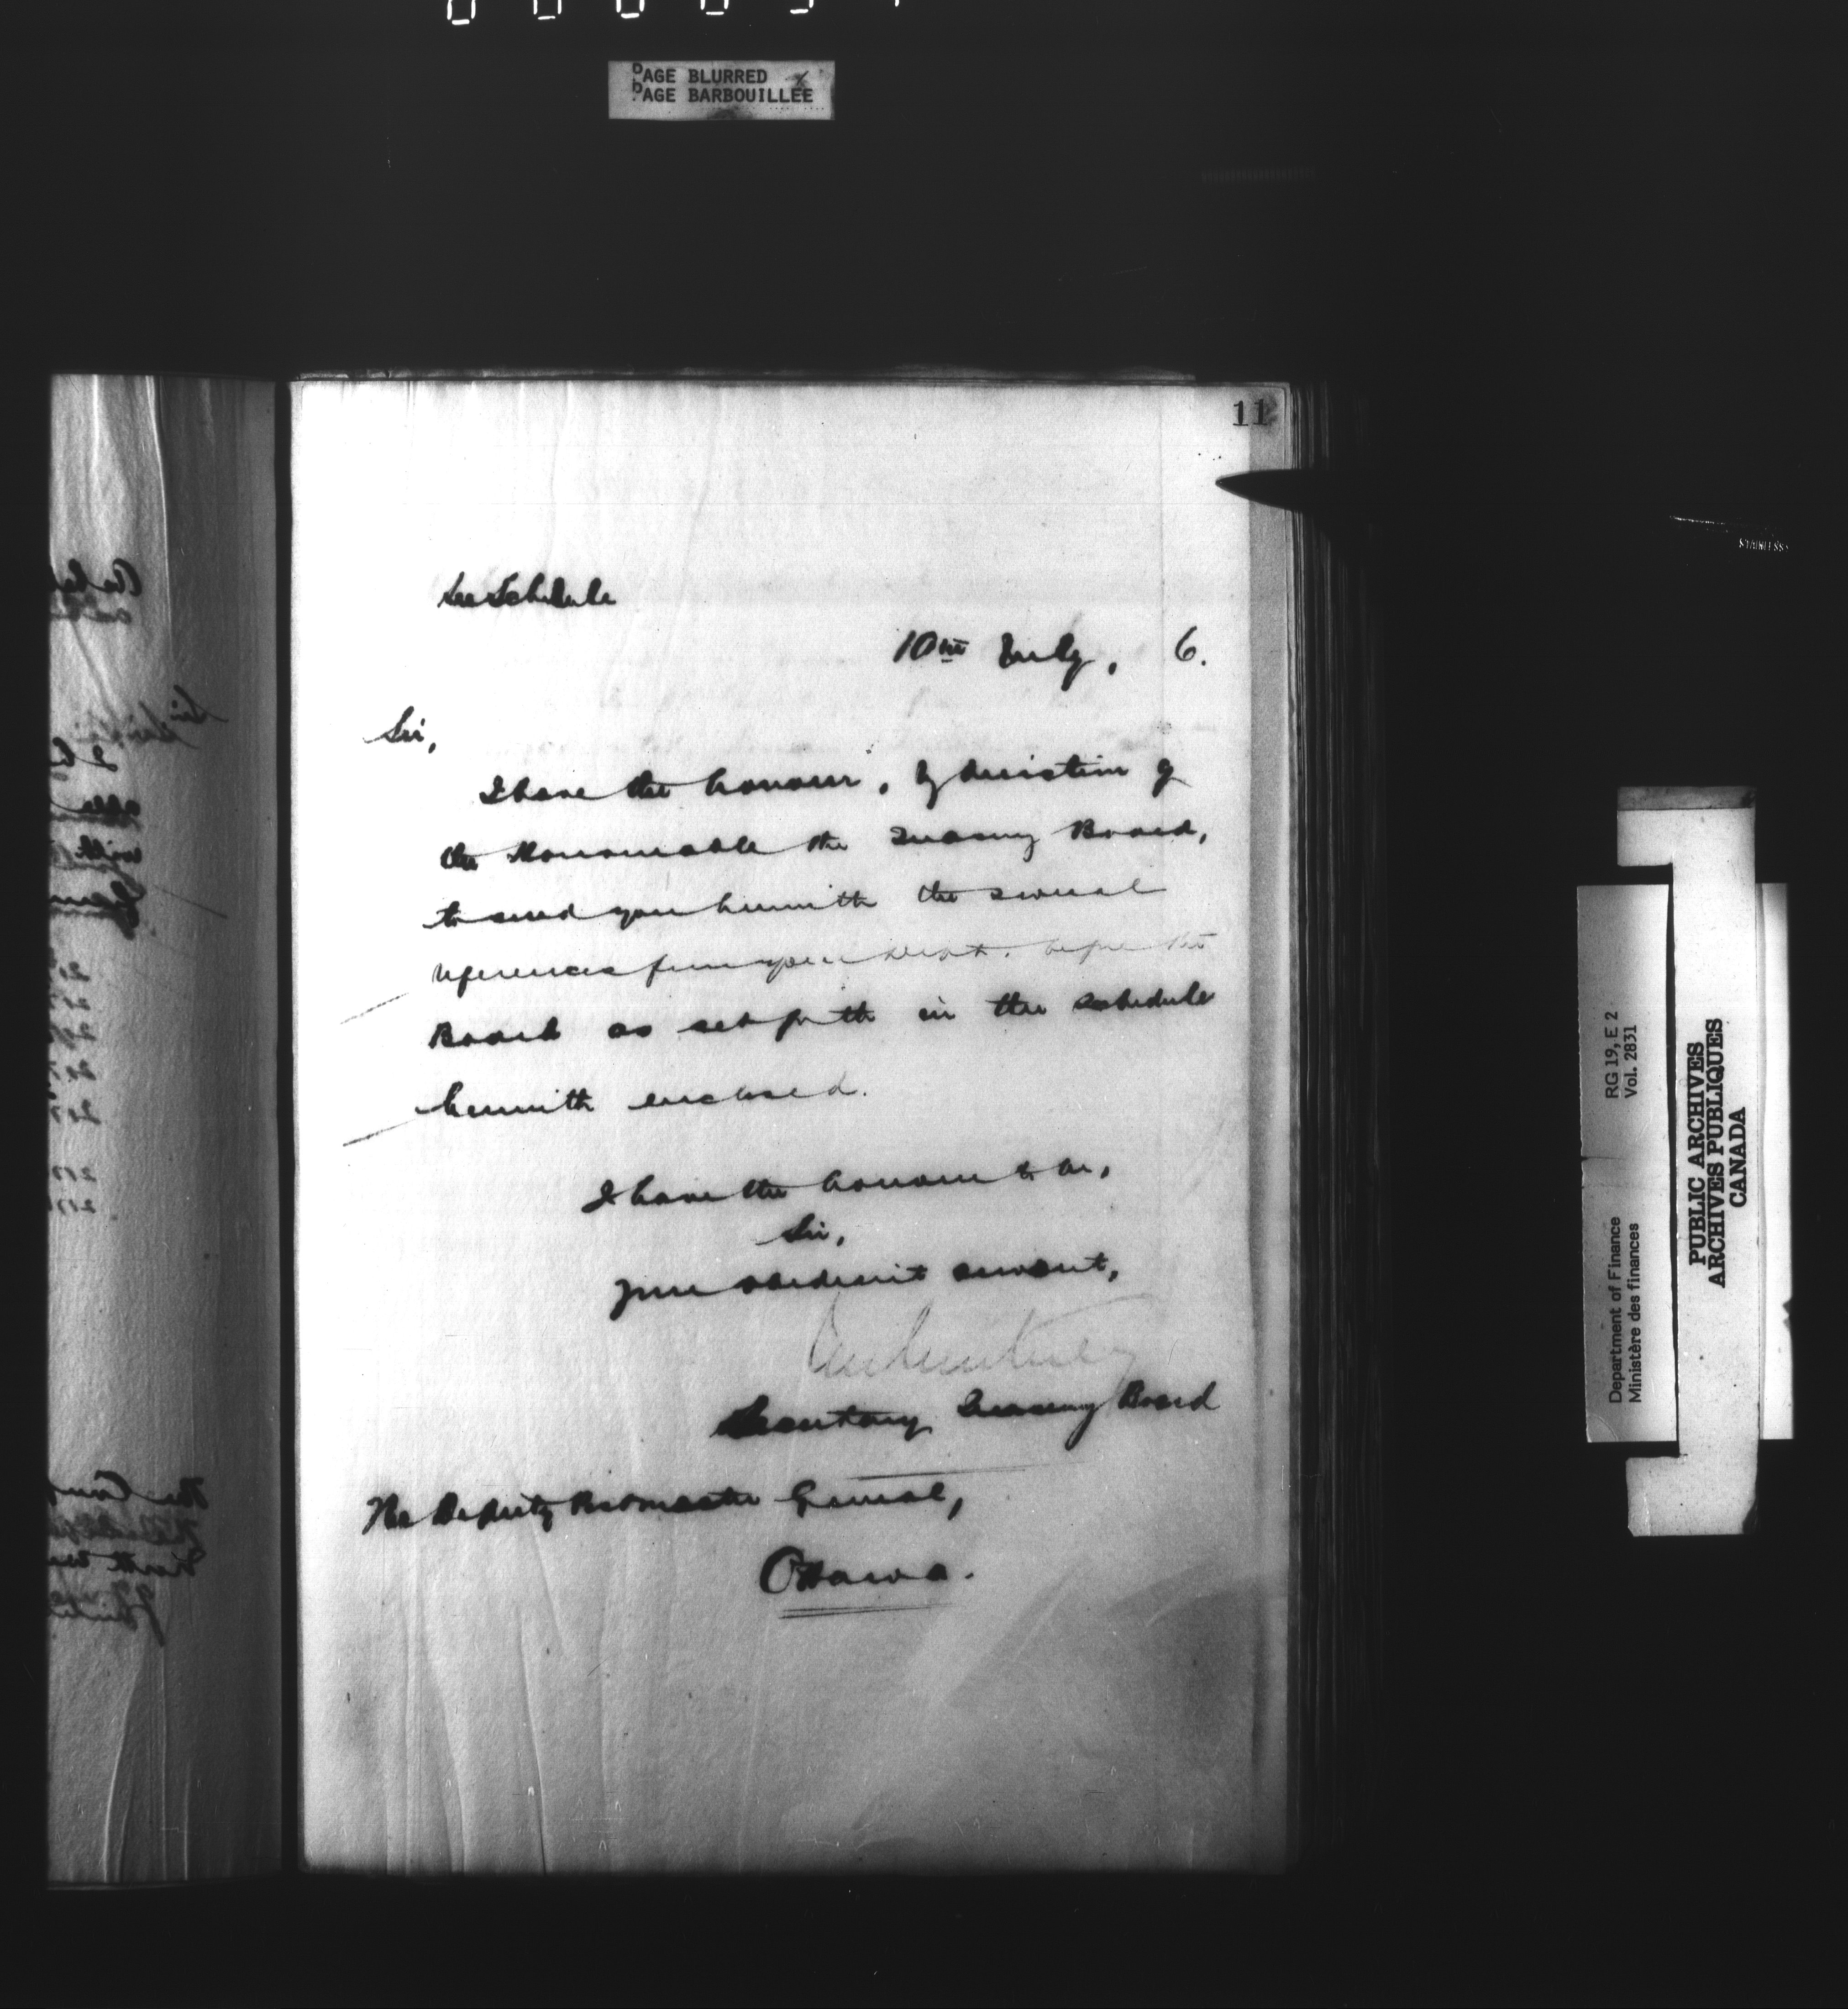 PAGE BLURRED
PAGE BARBOUILLEE
11
See Schedule
10th July, 6.
Sir,
I have the honour, by direction of
the Honourable the Treasury Board,
to send you herewith the several
references from your Dept. before the
Board as set forth in the schedule
herewith enclosed.
I have the honour to be,
Sir,
Your obedient servant,
Secretary Treasury Board
The Deputy Postmaster General,
Ottawa.
STAINLESS
Department of Finance RG 19, E 2
Ministère des finances Vol. 2831
PUBLIC ARCHIVES
ARCHIVES PUBLIQUES
CANADA